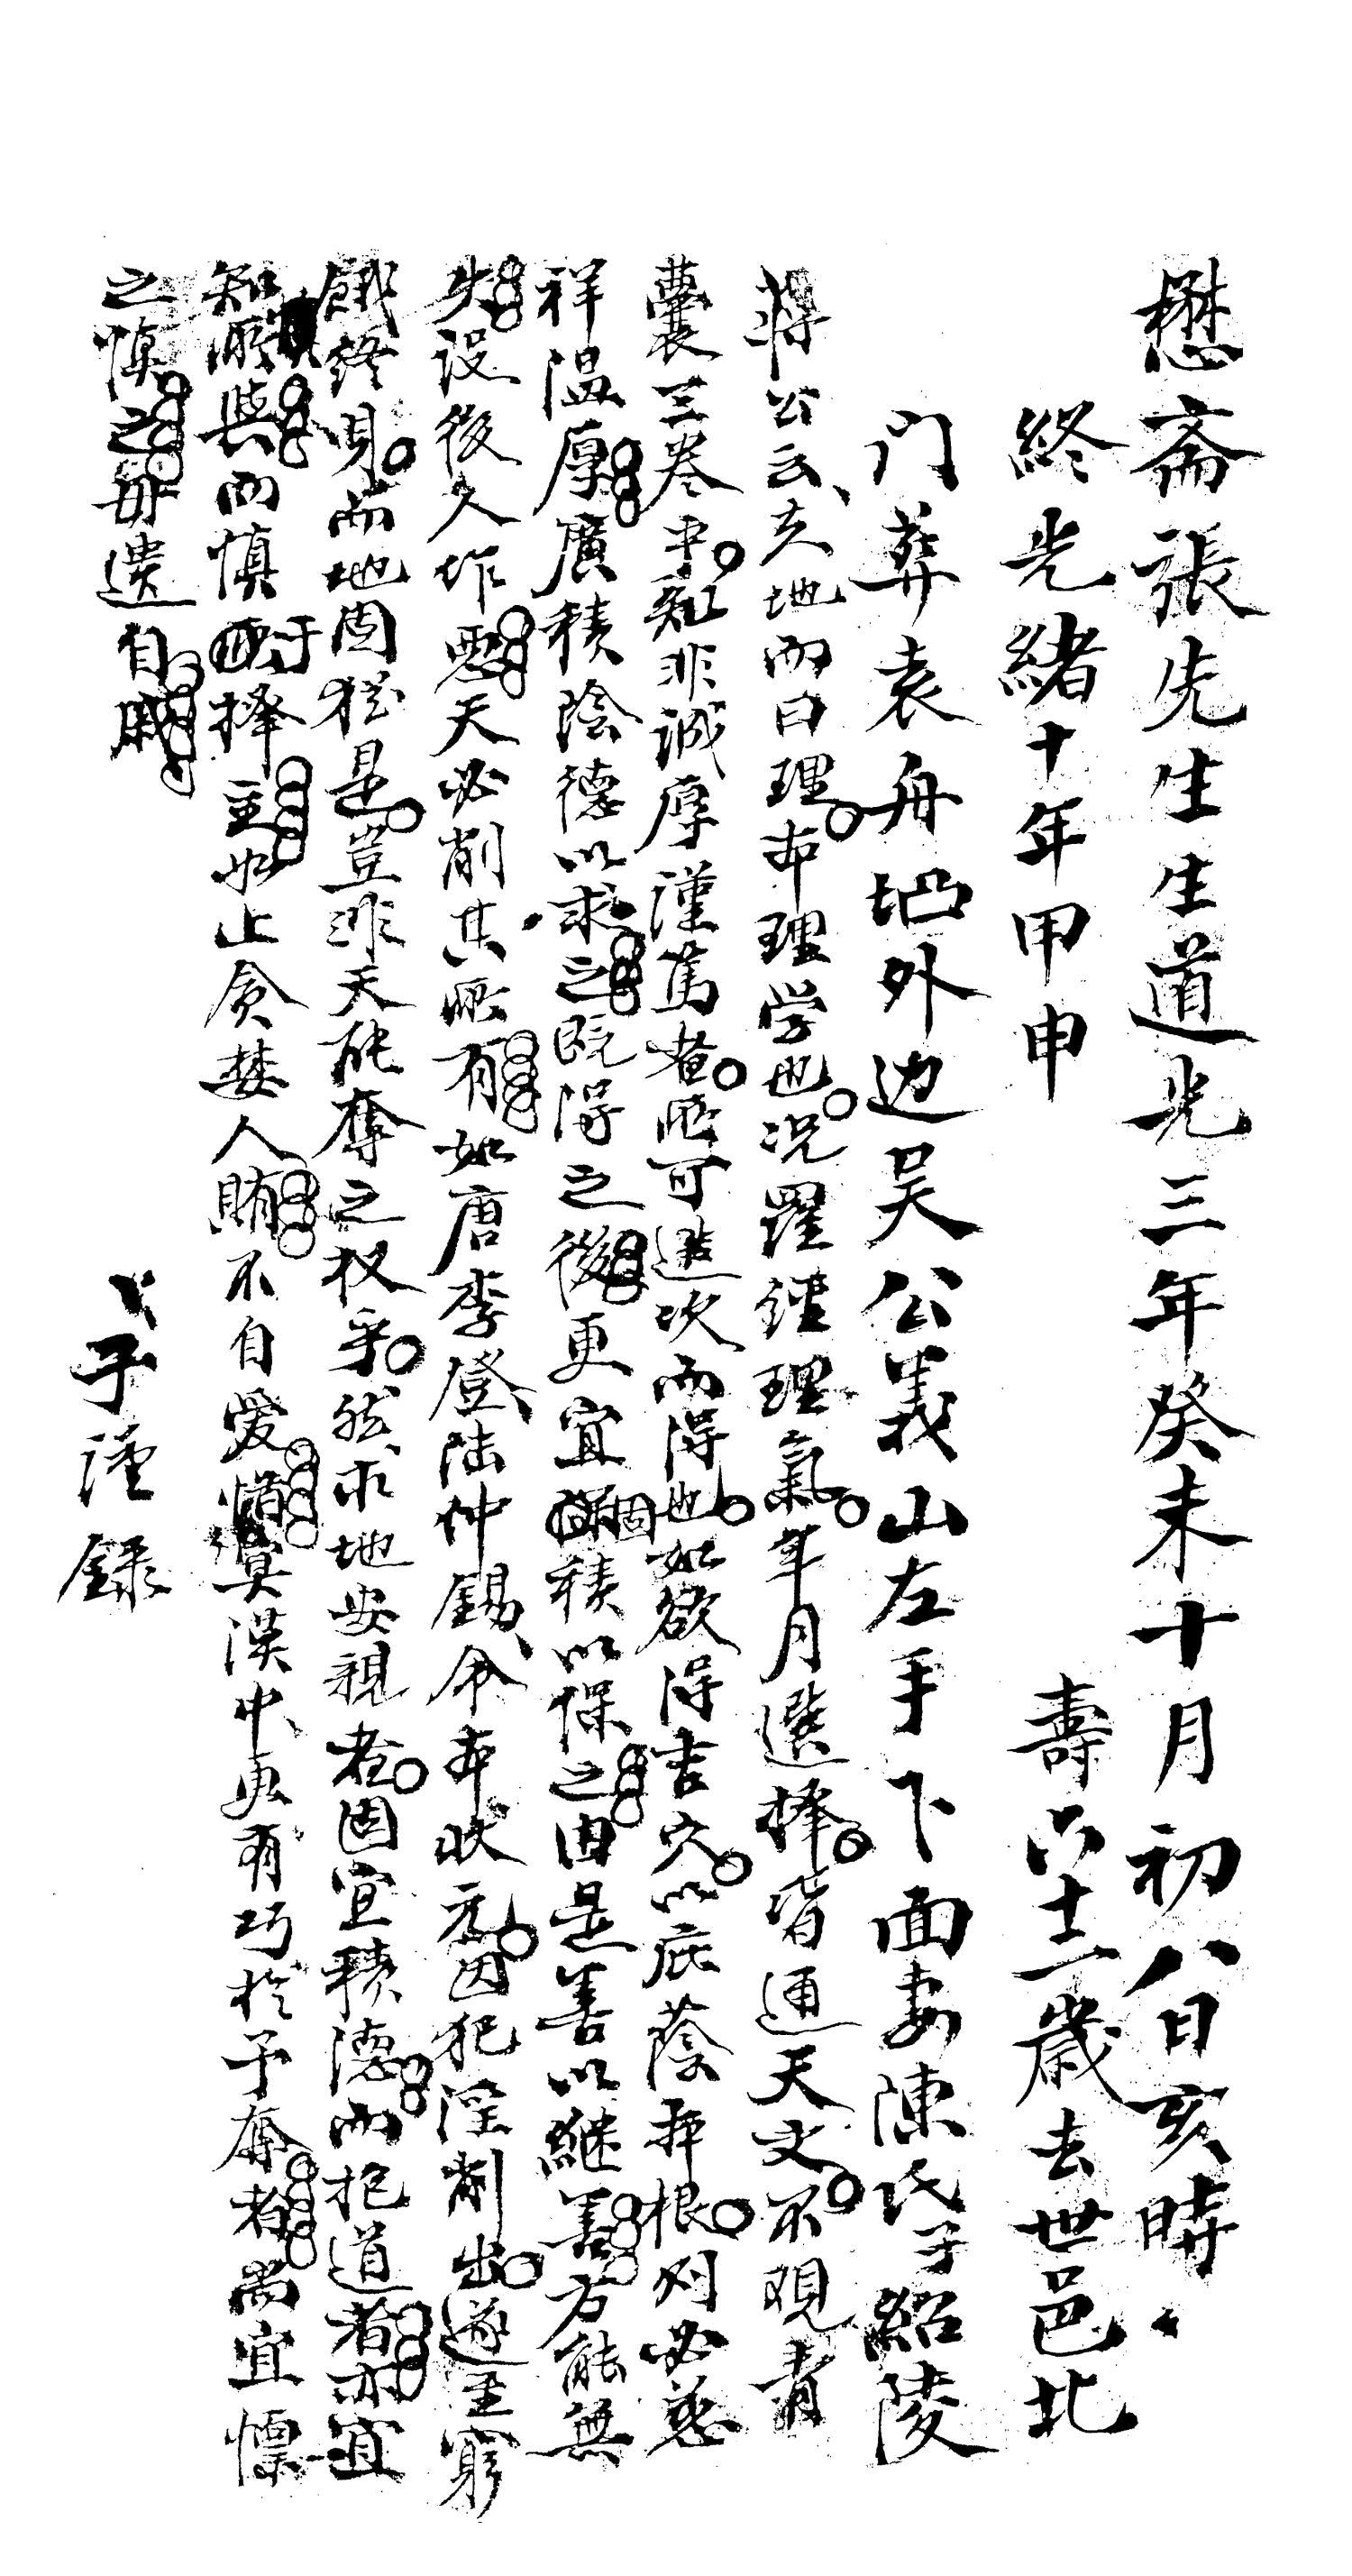 懋斋張先生生道光三年癸未十月初八日亥時
終光緒十年甲申 壽六十二歲去世邑北
门葬袁舟垇外边吴公義山左手下面妻陳氏子紹陵
蒋公云夫地而曰理本理学也况羅經理氣年月選擇皆通天文不观青
囊三卷乎知非誠厚謹篤者所可造次而得也如欲得吉穴以庇蔭邦根则必慈
祥温厚廣積陰德以求之既得之後更宜固積以保之由是善以繼善方能無
失设後人作惡天必削其所有如唐李登陆仲錫命本状元因犯淫削出遂至窮
餓終身而地固猶是豈非天能奪之权乎然求地安親者固宜積德而抱道者亦宜
知所與而慎于擇主如止貪婪人賄不自愛慎冥漠中更有巧於予奪者尚宜慓
之慎之毋遗自戚
子谨録